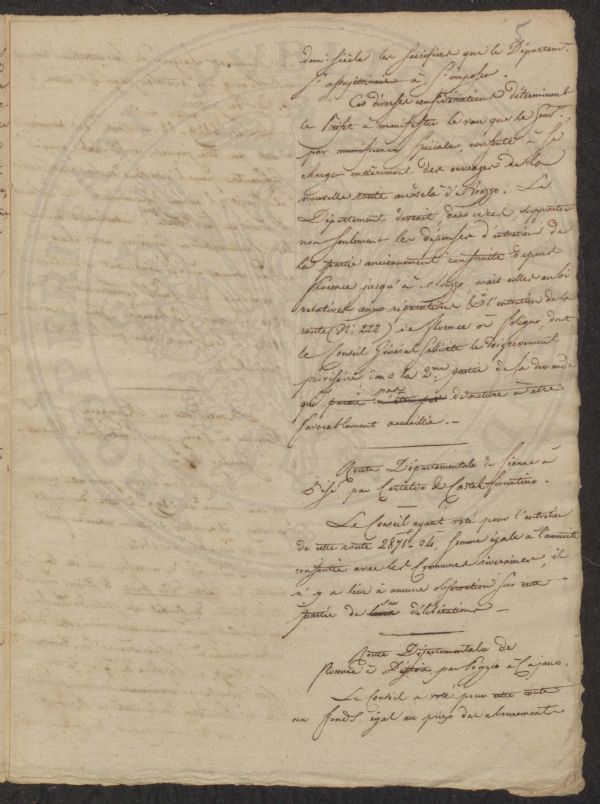 5
demi siècle les sacrifices que le Départemt.
s'assujettirait à s'imposer.
Ces diverses considérations déterminent
le Préfet à manifester le vœu que le Gouvt.
par munificence spéciale, consente à se
charger entièrement des ouvrages de la
nouvelle route au delà d'Arezzo. Le
Département devrait dans ce cas supporter
non seulement les dépenses d'entretien de
la partie anciennement construite depuis
Florence jusqu'à Arezzo mais celles aussi
relatives aux réparations & à l'entretien de la
route (N.° 222) de Florence à Foligno, dont
le Conseil Général sollicite le dégrèvement
provisoire dans la 2.me partie de sa demande
qui paraît pas de nature à être
favorablement accueillie. —
Route Départementale de Sienne à
Pise par Certaldo & Castel fiorentino.
Le Conseil ayant voté pour l'entretien
de cette route 2871.f 04, somme égale à l'annuité
consentie avec les Communes riveraines, il
n'y a lieu à aucune observation sur cette
partie de sa délibération —
Route Départementale de
Florence à Pistoie par Poggio a Cajano.
Le Conseil a voté pour cette route
un fonds égal au prix des abonnements